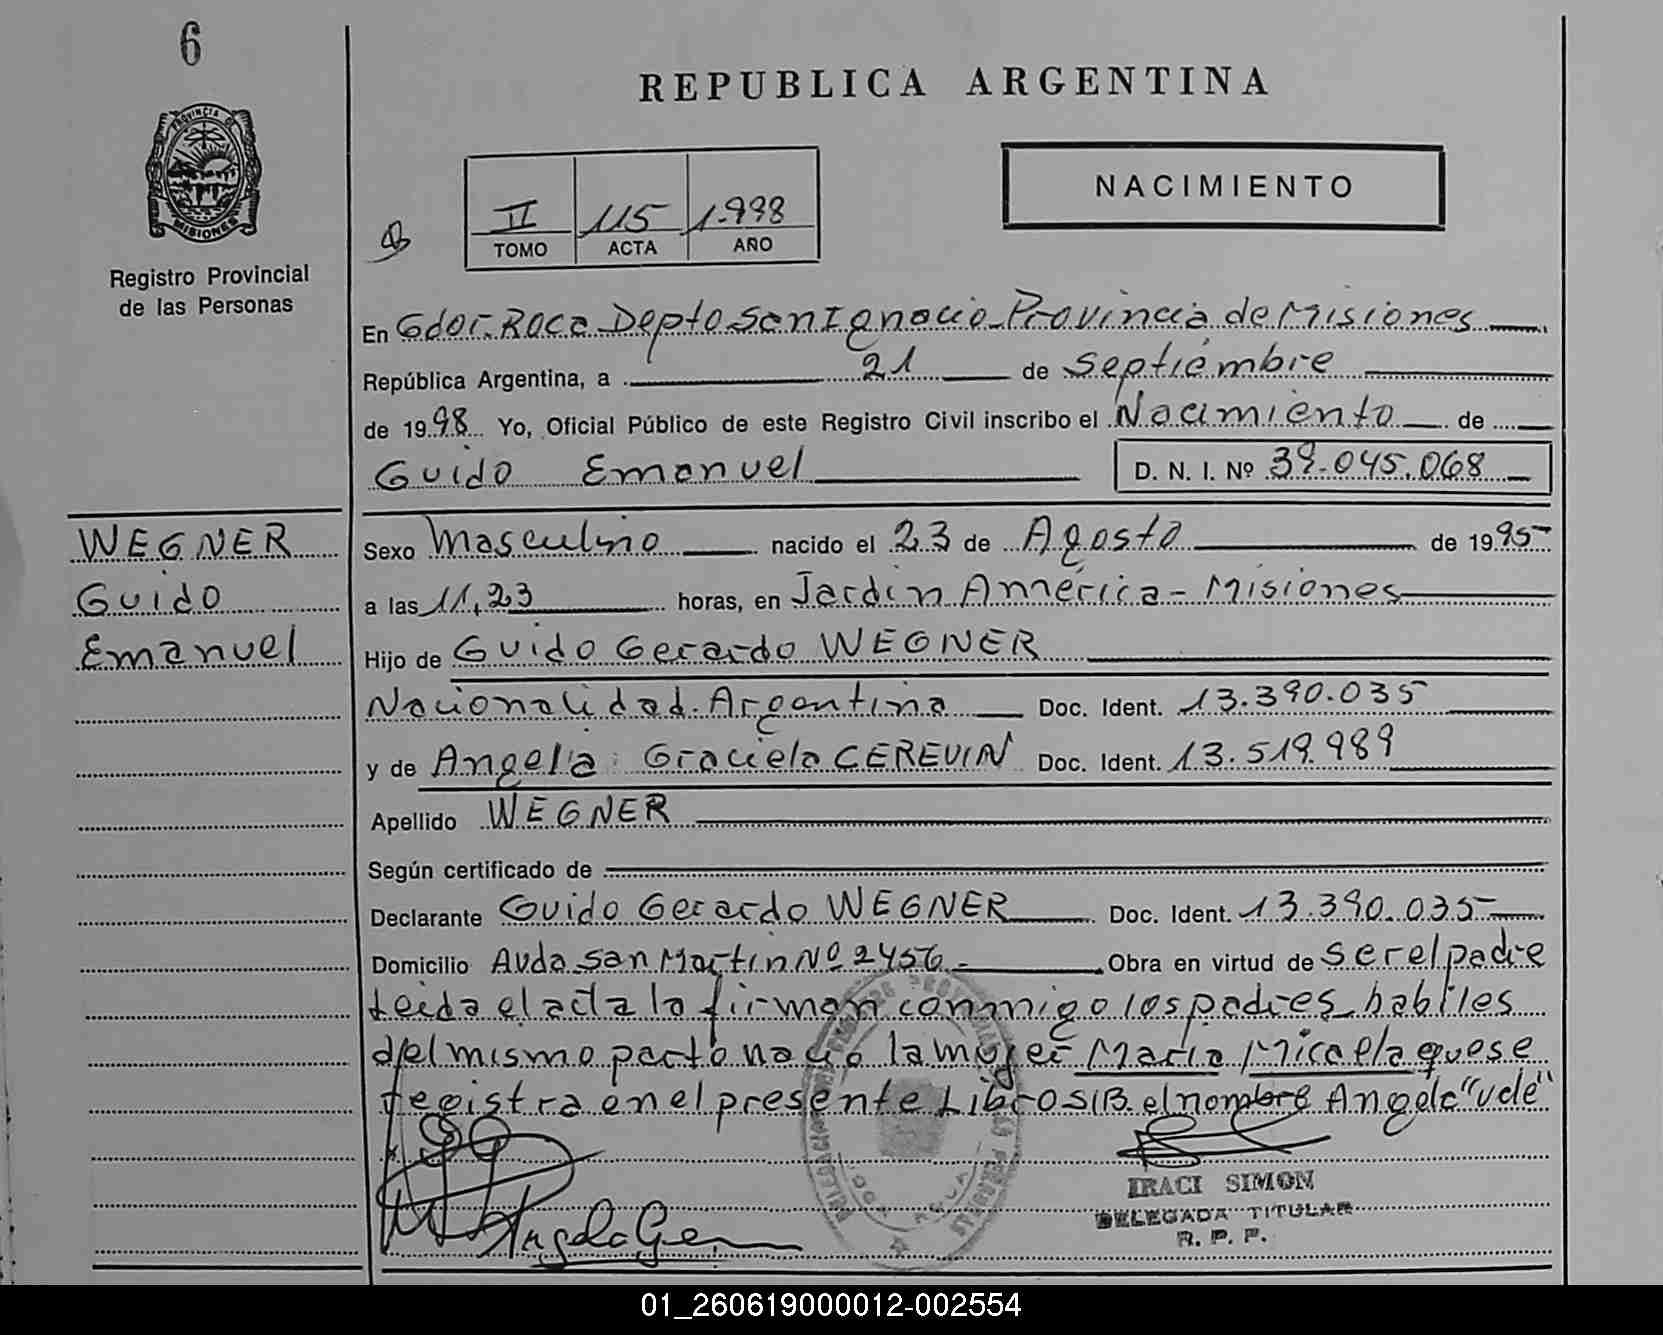 6
REPUBLICA ARGENTINA
PROVINCIA DE
MISIONES
Registro Provincial
de las Personas
II 115 1.998
TOMO ACTA AÑO
NACIMIENTO
En Gdor. Roca Depto San Ignacio Provincia de Misiones
República Argentina, a 21 de septiembre
de 1998 Yo, Oficial Público de este Registro Civil inscribo el Nacimiento de
Guido Emanuel
D. N. I. Nº 39.045.068
WEGNER
Guido
Emanuel
Sexo Masculino nacido el 23 de Agosto de 1995
a las 11,23 horas, en Jardin América - Misiones
Hijo de Guido Gerardo WEGNER
Nacionalidad Argentina Doc. Ident. 13.390.035
y de Angela Graciela CEREVIN Doc. Ident. 13.519.989
Apellido WEGNER
Según certificado de
Declarante Guido Gerardo WEGNER Doc. Ident. 13.390.035
Domicilio Avda San Martin Nº 2456 Obra en virtud de ser el padre
Leida el acta la firman conmigo los padres habiles
del mismo parto nació la mujer Maria Micaela que se
registra en el presente Libro S/B. el nombre Angela "vale"
IRACI SIMON
DELEGADA TITULAR
R. P. P.
01_260619000012-002554